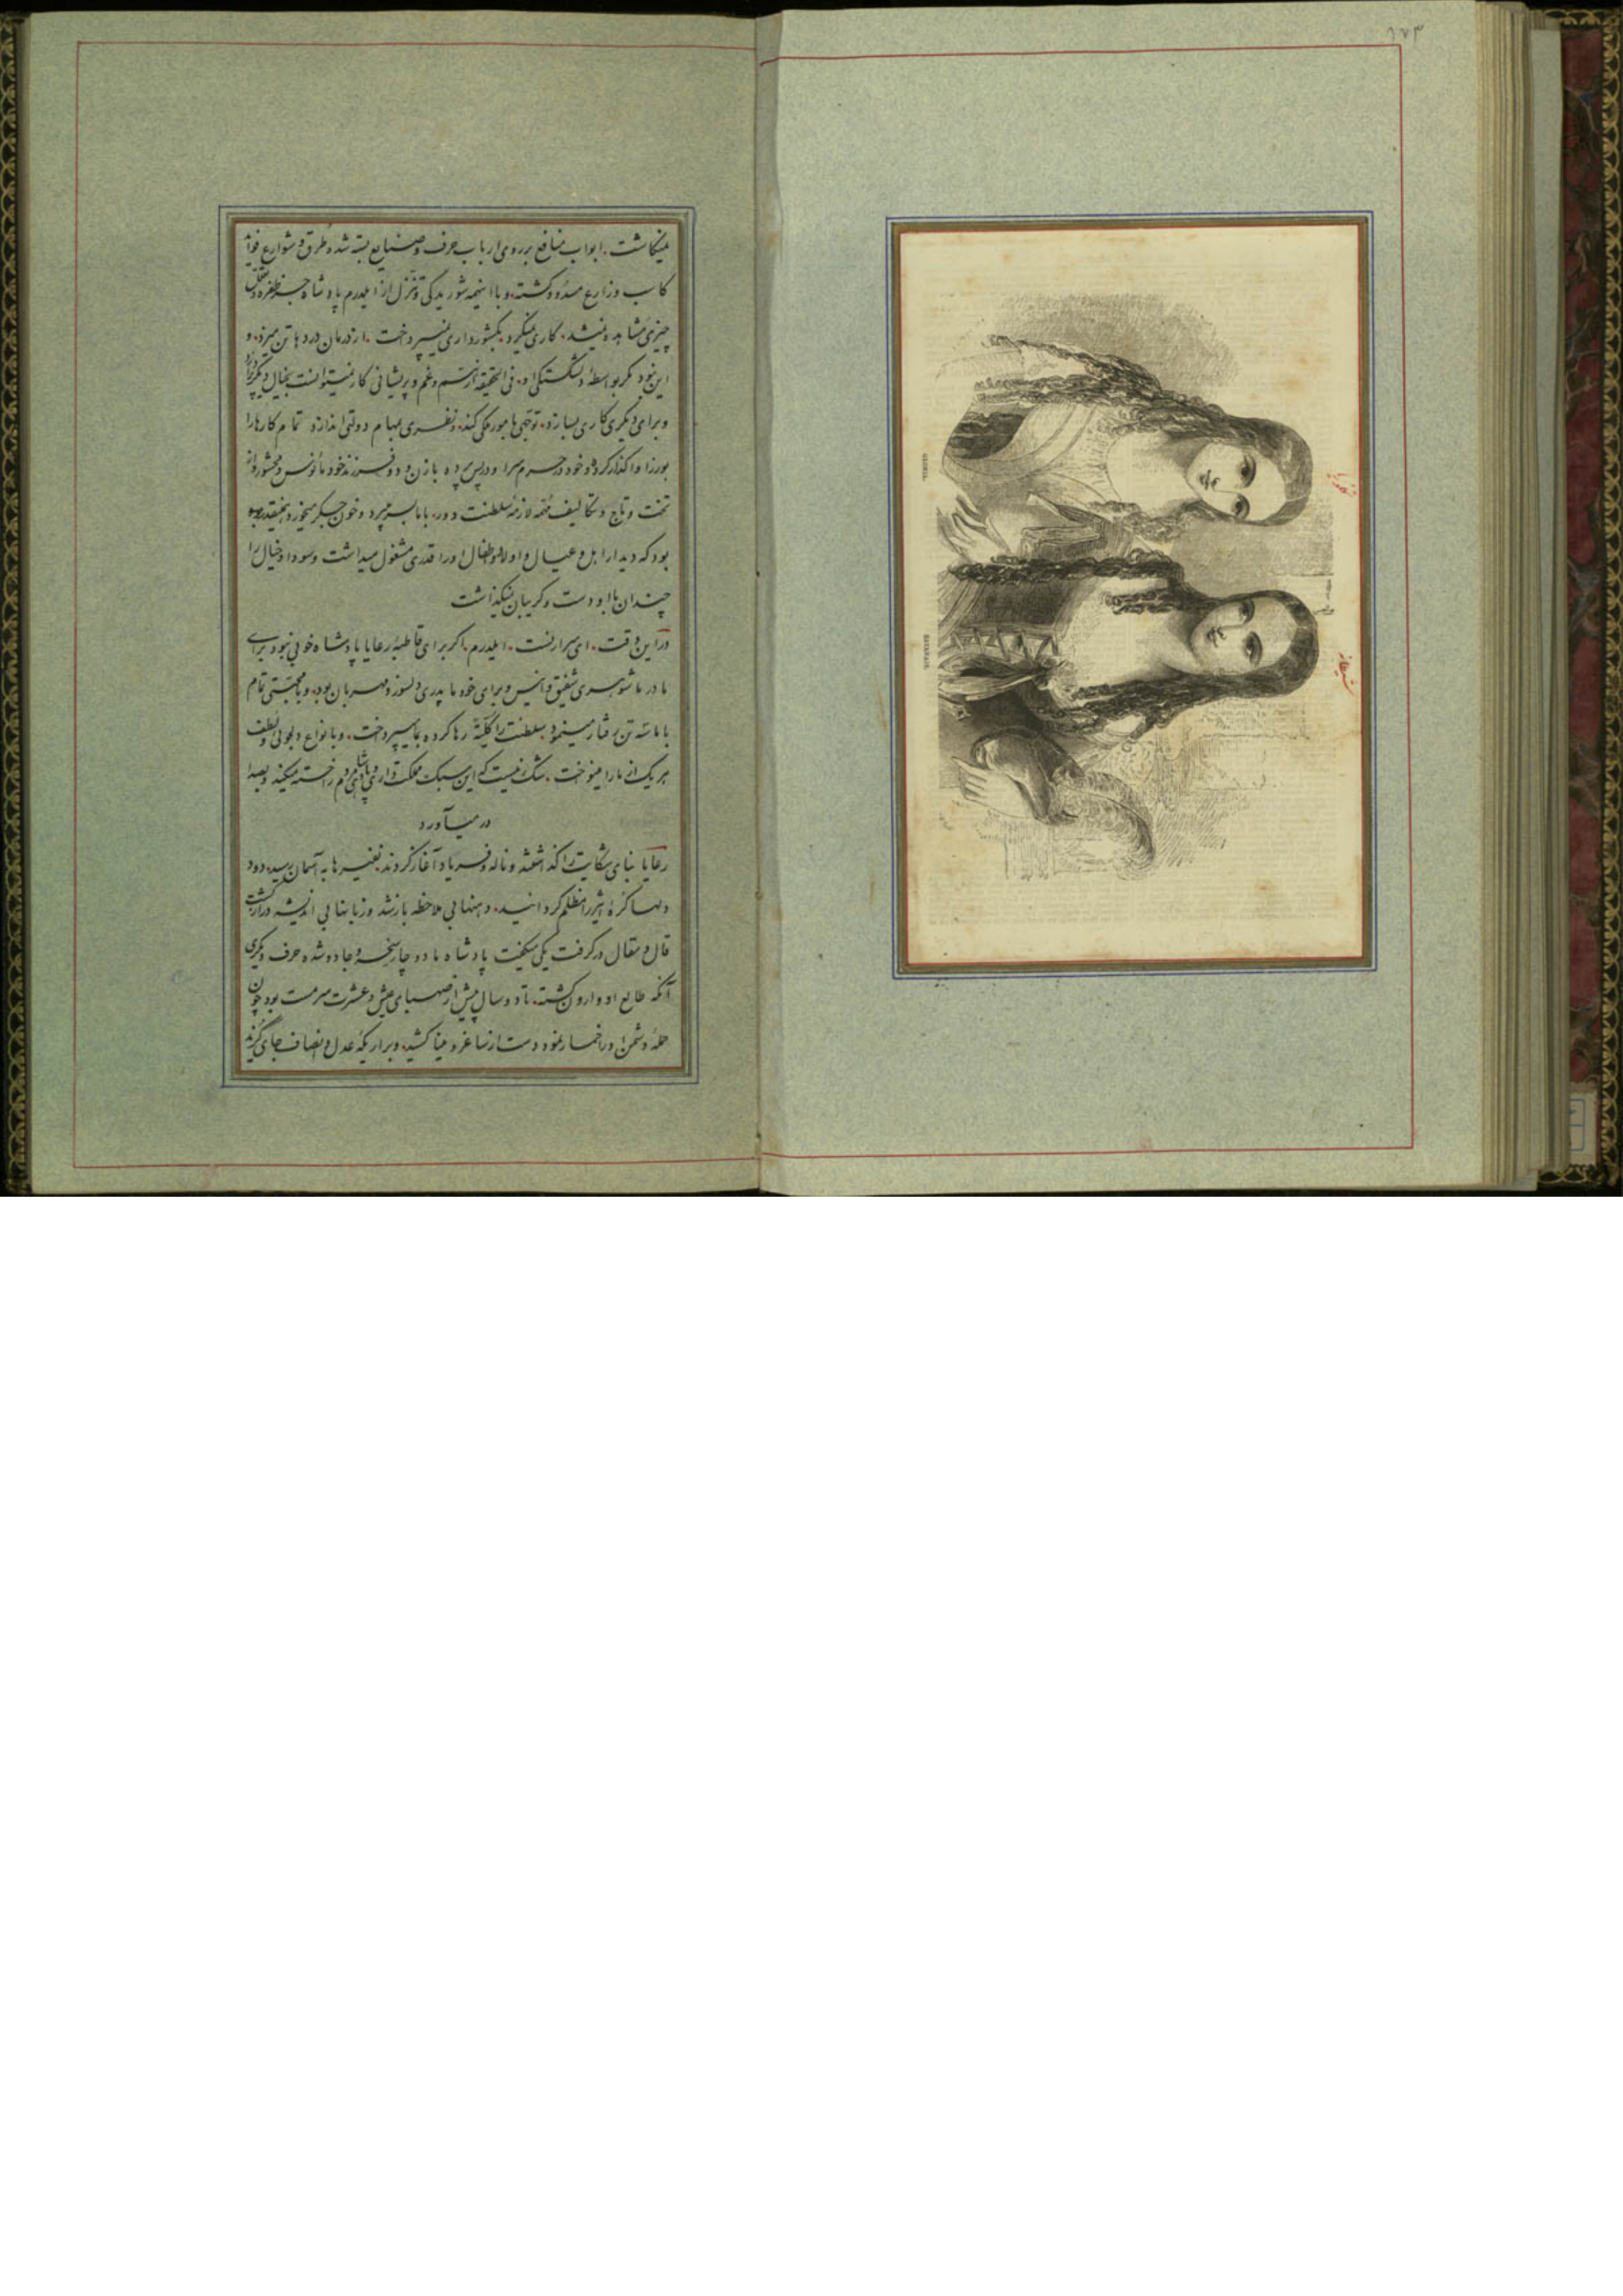 ۱۷۳
میکاشت. ابواب منافع بر روی ارباب حرف و صنایع بسته شده طرق و شوارع فواید
کاسب و زارع مسدود گشته. و با اینهمه شوریدگی و تنزل از ایلدرم پادشاه جز
چیزی مشاهده نمیشد. کاری نمیکرد. بکشورداری نمیپرداخت. از درمان دردها تن میزد. و
این نبود مگر بواسطه دلشکستگی او. فی الحقیقه از ستم و غم و پریشانی کار نمیتوانست بخیال دیگر
و برای دیگری کاری بسازد. توجهی بامور ملکی کند. نظری بمهام دولتی اندازد تمام کارها را
بوزرا واگذار کرده خود در حرم سرا و در پس پرده با زن و دو فرزند خود مأنوس و محشور و از
تخت و تاج و تکالیف مهمه لازمه سلطنت دور. با ما بسر میبرد و خون جگر میخورد همینقدر
بود که دیدار اهل و عیال و اولاد و اطفال او را قدری مشغول میداشت و سودا و خیال را
چندان با او دست و گریبان نمیگذاشت
در این وقت. ای سرارنست. ایلدرم. اگر برای قاطبه رعایا پادشاه خوبی نبود برای
مادر ما شوهری شفیق و انیس و برای خود ما پدری دلسوز و مهربان بود. و با محبتی تمام
با ما سه تن رفتار مینمود. سلطنت را کلیة رها کرده بما میپرداخت. و با انواع دلجوئی و لطف
هر یک از ما را مینواخت. شک نیست که این سبک مملکت داری و پادشاهی مردم را خسته میکند و بصدا
در میآورد
رعایا بنای شکایت را گذاشتند و ناله و فریاد آغاز کردند. نفیرها به آسمان رسید. دود
دلها کره اثیر را مظلم گردانید. دهنها بی ملاحظه باز شد و زبانها بی اندیشه دراز گشت
قال و مقال در گرفت یکی میگفت پادشاه ما دوچار سخره و جادو شده حرف دیگری
آنکه طالع او وارون گشته. تا دو سال پیش از صهبای عیش و عشرت سرمست بود چون
حمله دشمن او را خمار نمود دست از ساغر و مینا کشید. و بر اریکه عدل و انصاف جای گزید